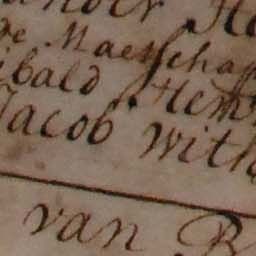 de Maetschap
ibald Hem
Jacob With
van B